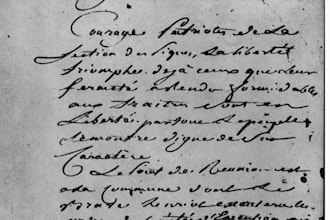 Courage patriotes de la
Section des Piques, la liberté
triomphe. déjà ceux que leur
fermeté a rendu formidables
aux traitres sont en
liberté. partout le peuple
se montre digne de son
Caractère
Le point de Reunion est
a la commune dont le
brave